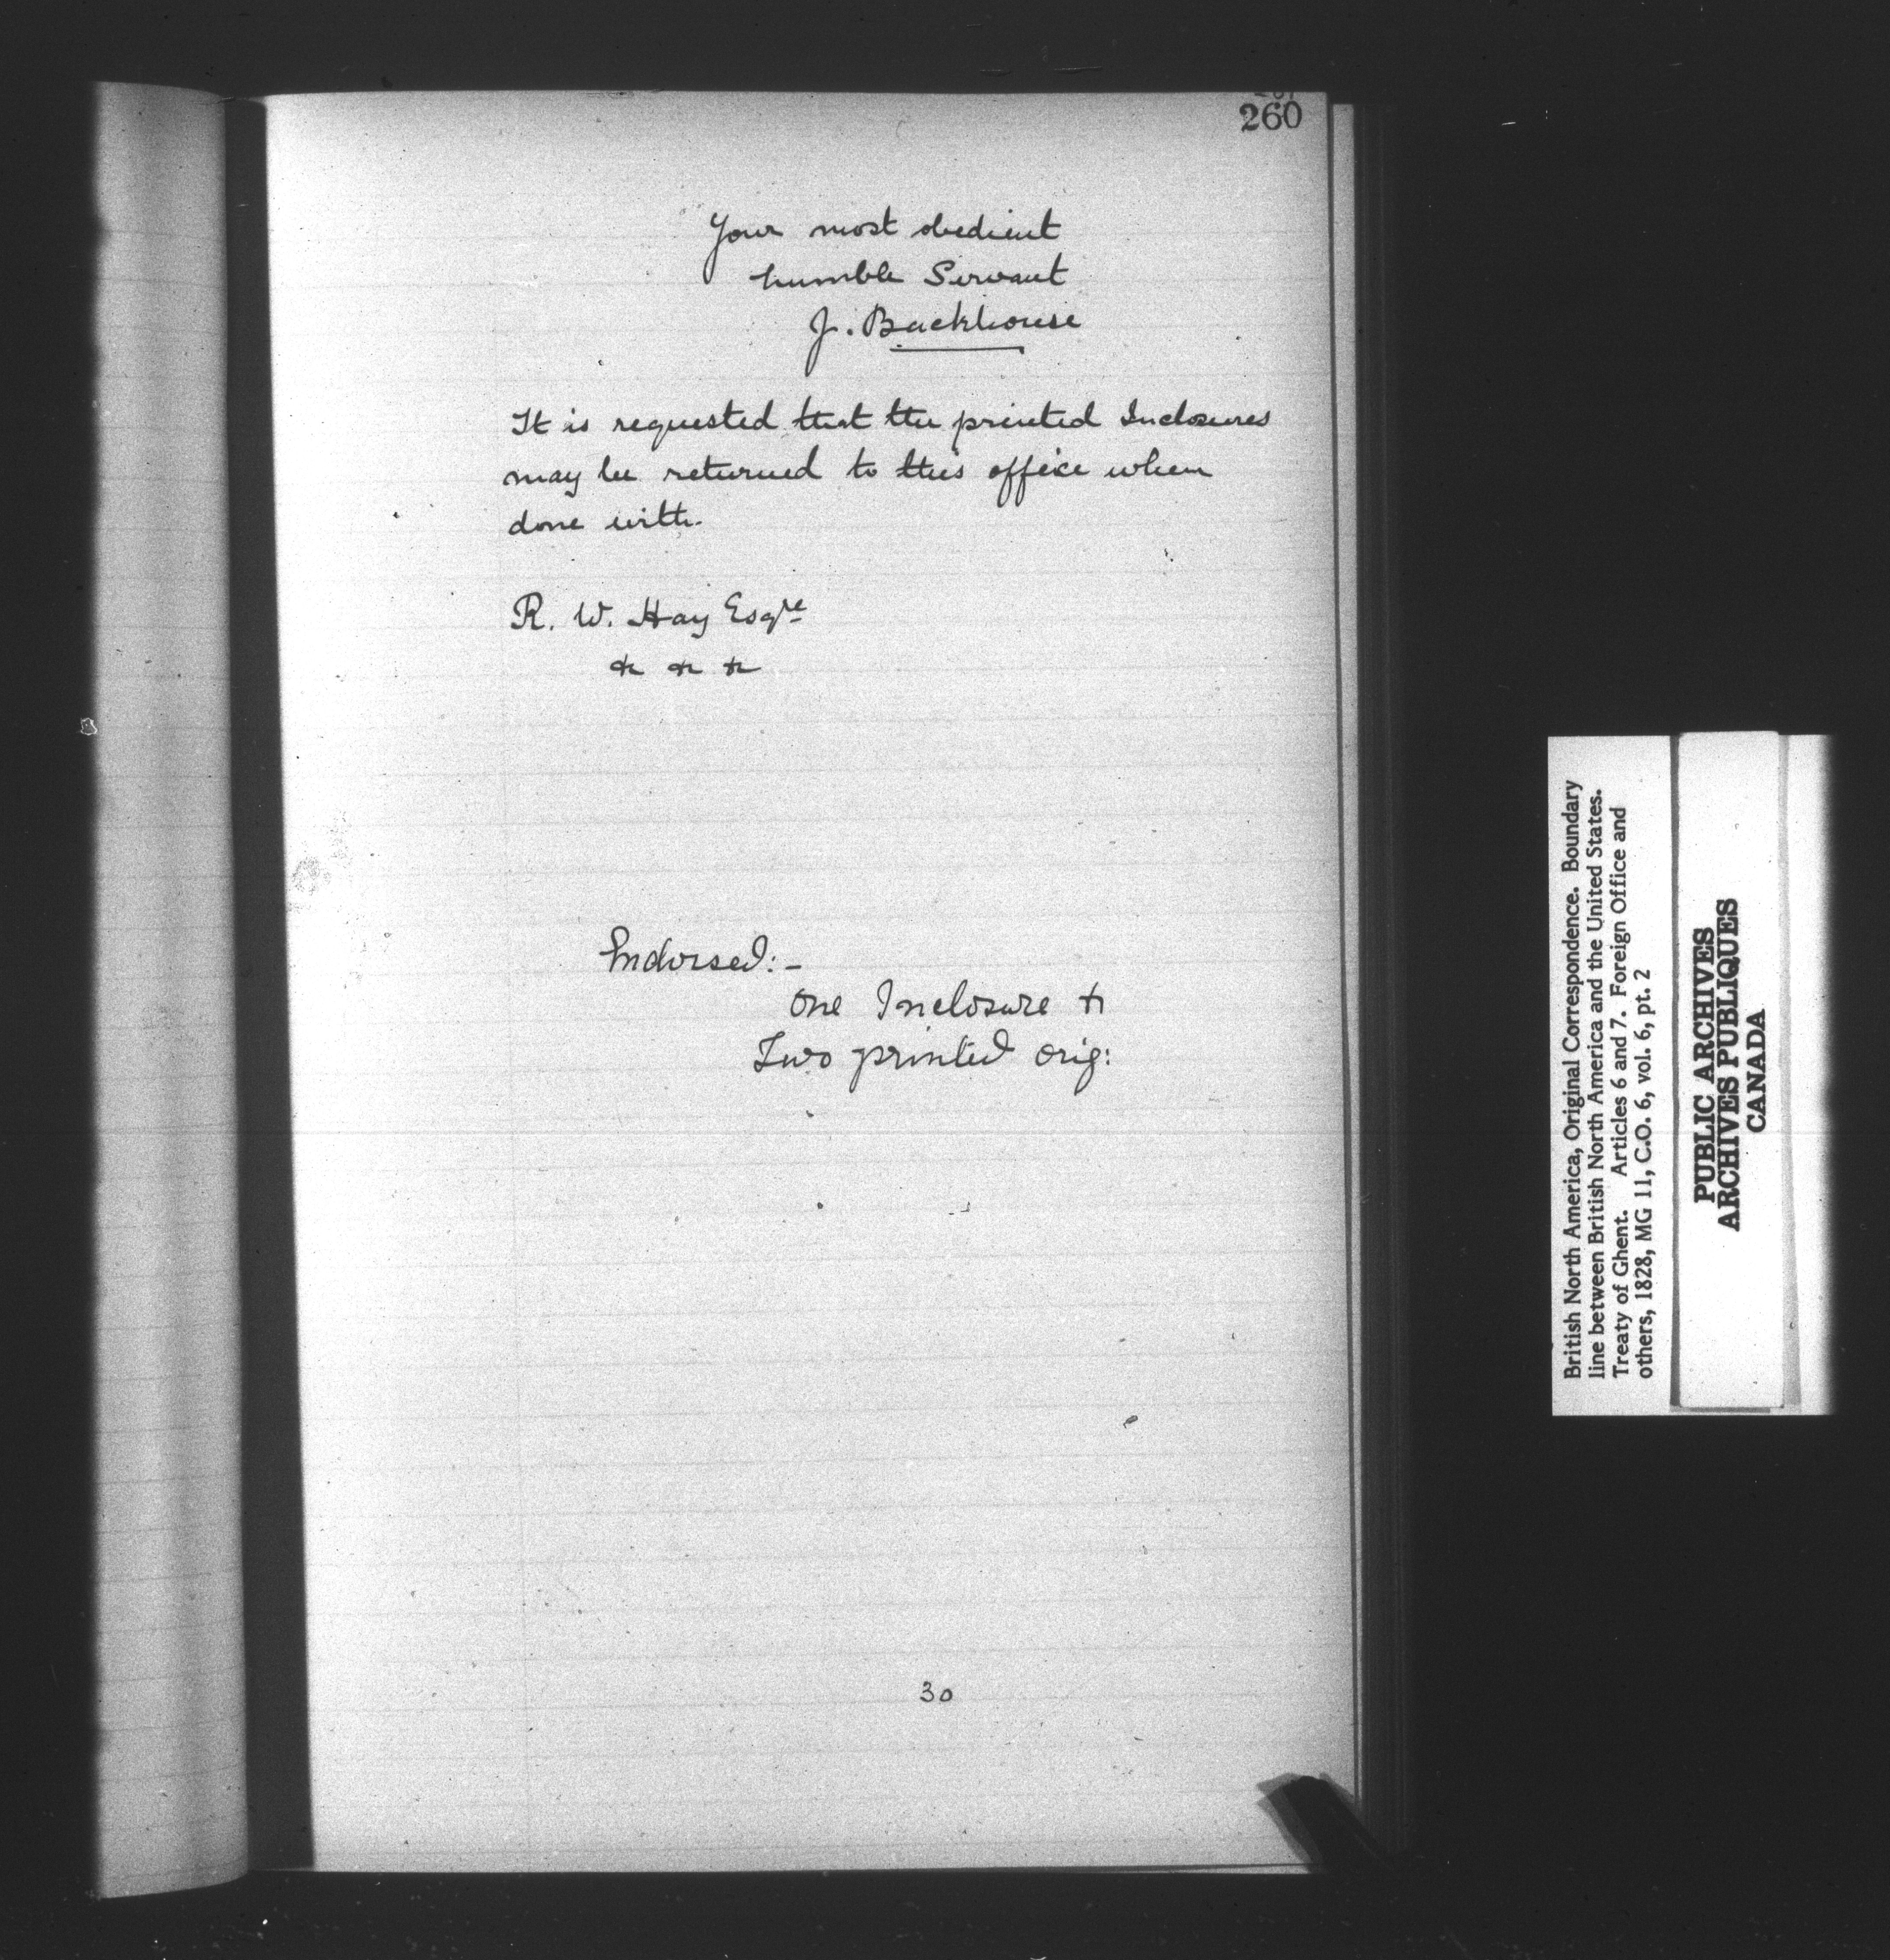 260
Your most obedient
humble Servant
J. Backhouse
It is requested that the printed Inclosures
may be returned to this office when
done with.
R. W. Hay Esqre
&c &c &c
Endorsed:-
One Inclosure &
Two printed orig:
30
British North America, Original Correspondence. Boundary
line between British North America and the United States.
Treaty of Ghent. Articles 6 and 7. Foreign Office and
others, 1828, MG 11, C.O. 6, vol. 6, pt. 2
PUBLIC ARCHIVES
ARCHIVES PUBLIQUES
CANADA